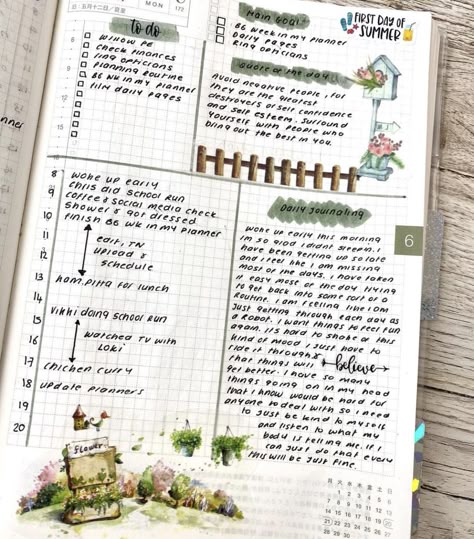 MON
177
FIRST DAY OF
SUMMER
to do
WILLOW PE
CHECK FINANCES
RING OPTICIANS
PLANNING ROUTINE
B6 WK IN MY PLANNER
FILM DAILY PAGES
MAIN GOAL
B6 WEEK IN MY PLANNER
DAILY PAGES
RING OPTICIANS
QUOTE OF THE DAY
AVOID NEGATIVE PEOPLE, FOR
THEY ARE THE GREATEST
DESTROYERS OF SELF CONFIDENCE
AND SELF ESTEEM. SURROUND
YOURSELF WITH PEOPLE WHO
BRING OUT THE BEST IN YOU.
8 WOKE UP EARLY
9 CHRIS DID SCHOOL RUN
COFFEE & SOCIAL MEDIA CHECK
10 SHOWER & GOT DRESSED
FINISH B6 WK IN MY PLANNER
11 EDIT, TN
12 UPLOAD &
SCHEDULE
13 HAM, PITTA FOR LUNCH
14
15 VIKKI DOING SCHOOL RUN
16 WATCHED TV WITH
LOKI
17 CHICKEN CURRY
18 UPDATE PLANNERS
19
20
DAILY JOURNALING
WOKE UP EARLY THIS MORNING
IM SO GLAD I DIDNT SLEEP IN. I
HAVE BEEN GETTING UP SO LATE
AND I FEEL LIKE I AM MISSING
MOST OF THE DAYS. I HAVE TAKEN
IT EASY MOST OF THE DAY TRYING
TO GET BACK INTO SOME SORT OF A
ROUTINE. I AM FEELING LIKE I AM
JUST GETTING THROUGH EACH DAY AS
A ROBOT. I WANT THINGS TO FEEL FUN
AGAIN. IT'S HARD TO SHAKE OF THIS
KIND OF MOOD I JUST HAVE TO
RIDE IT THROUGH &
believe
THAT THINGS WILL
GET BETTER. I HAVE SO MANY
THINGS GOING ON IN MY HEAD
THAT I KNOW WOULD BE HARD FOR
ANYONE TO DEAL WITH SO I NEED
TO JUST BE KIND TO MYSELF
AND LISTEN TO WHAT MY
BODY IS TELLING ME. IF I
CAN JUST DO THAT EVERY
THIS WILL BE JUST FINE.
6
Flower